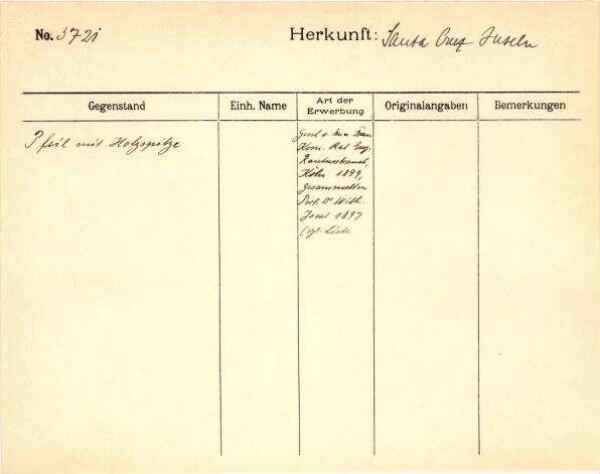 No. 3721
Herkunft: Santa Cruz Inseln
Gegenstand
Einh. Name
Art der
Erwerbung
Originalangaben
Bemerkungen
Pfeil mit Holzspitze
Gesch. v. Frau
Kom. Rat Eug.
Rautenstrauch,
Köln 1899,
Gesammelt v.
Prof. Dr Wilh.
Joest 1897
(vgl. Liste